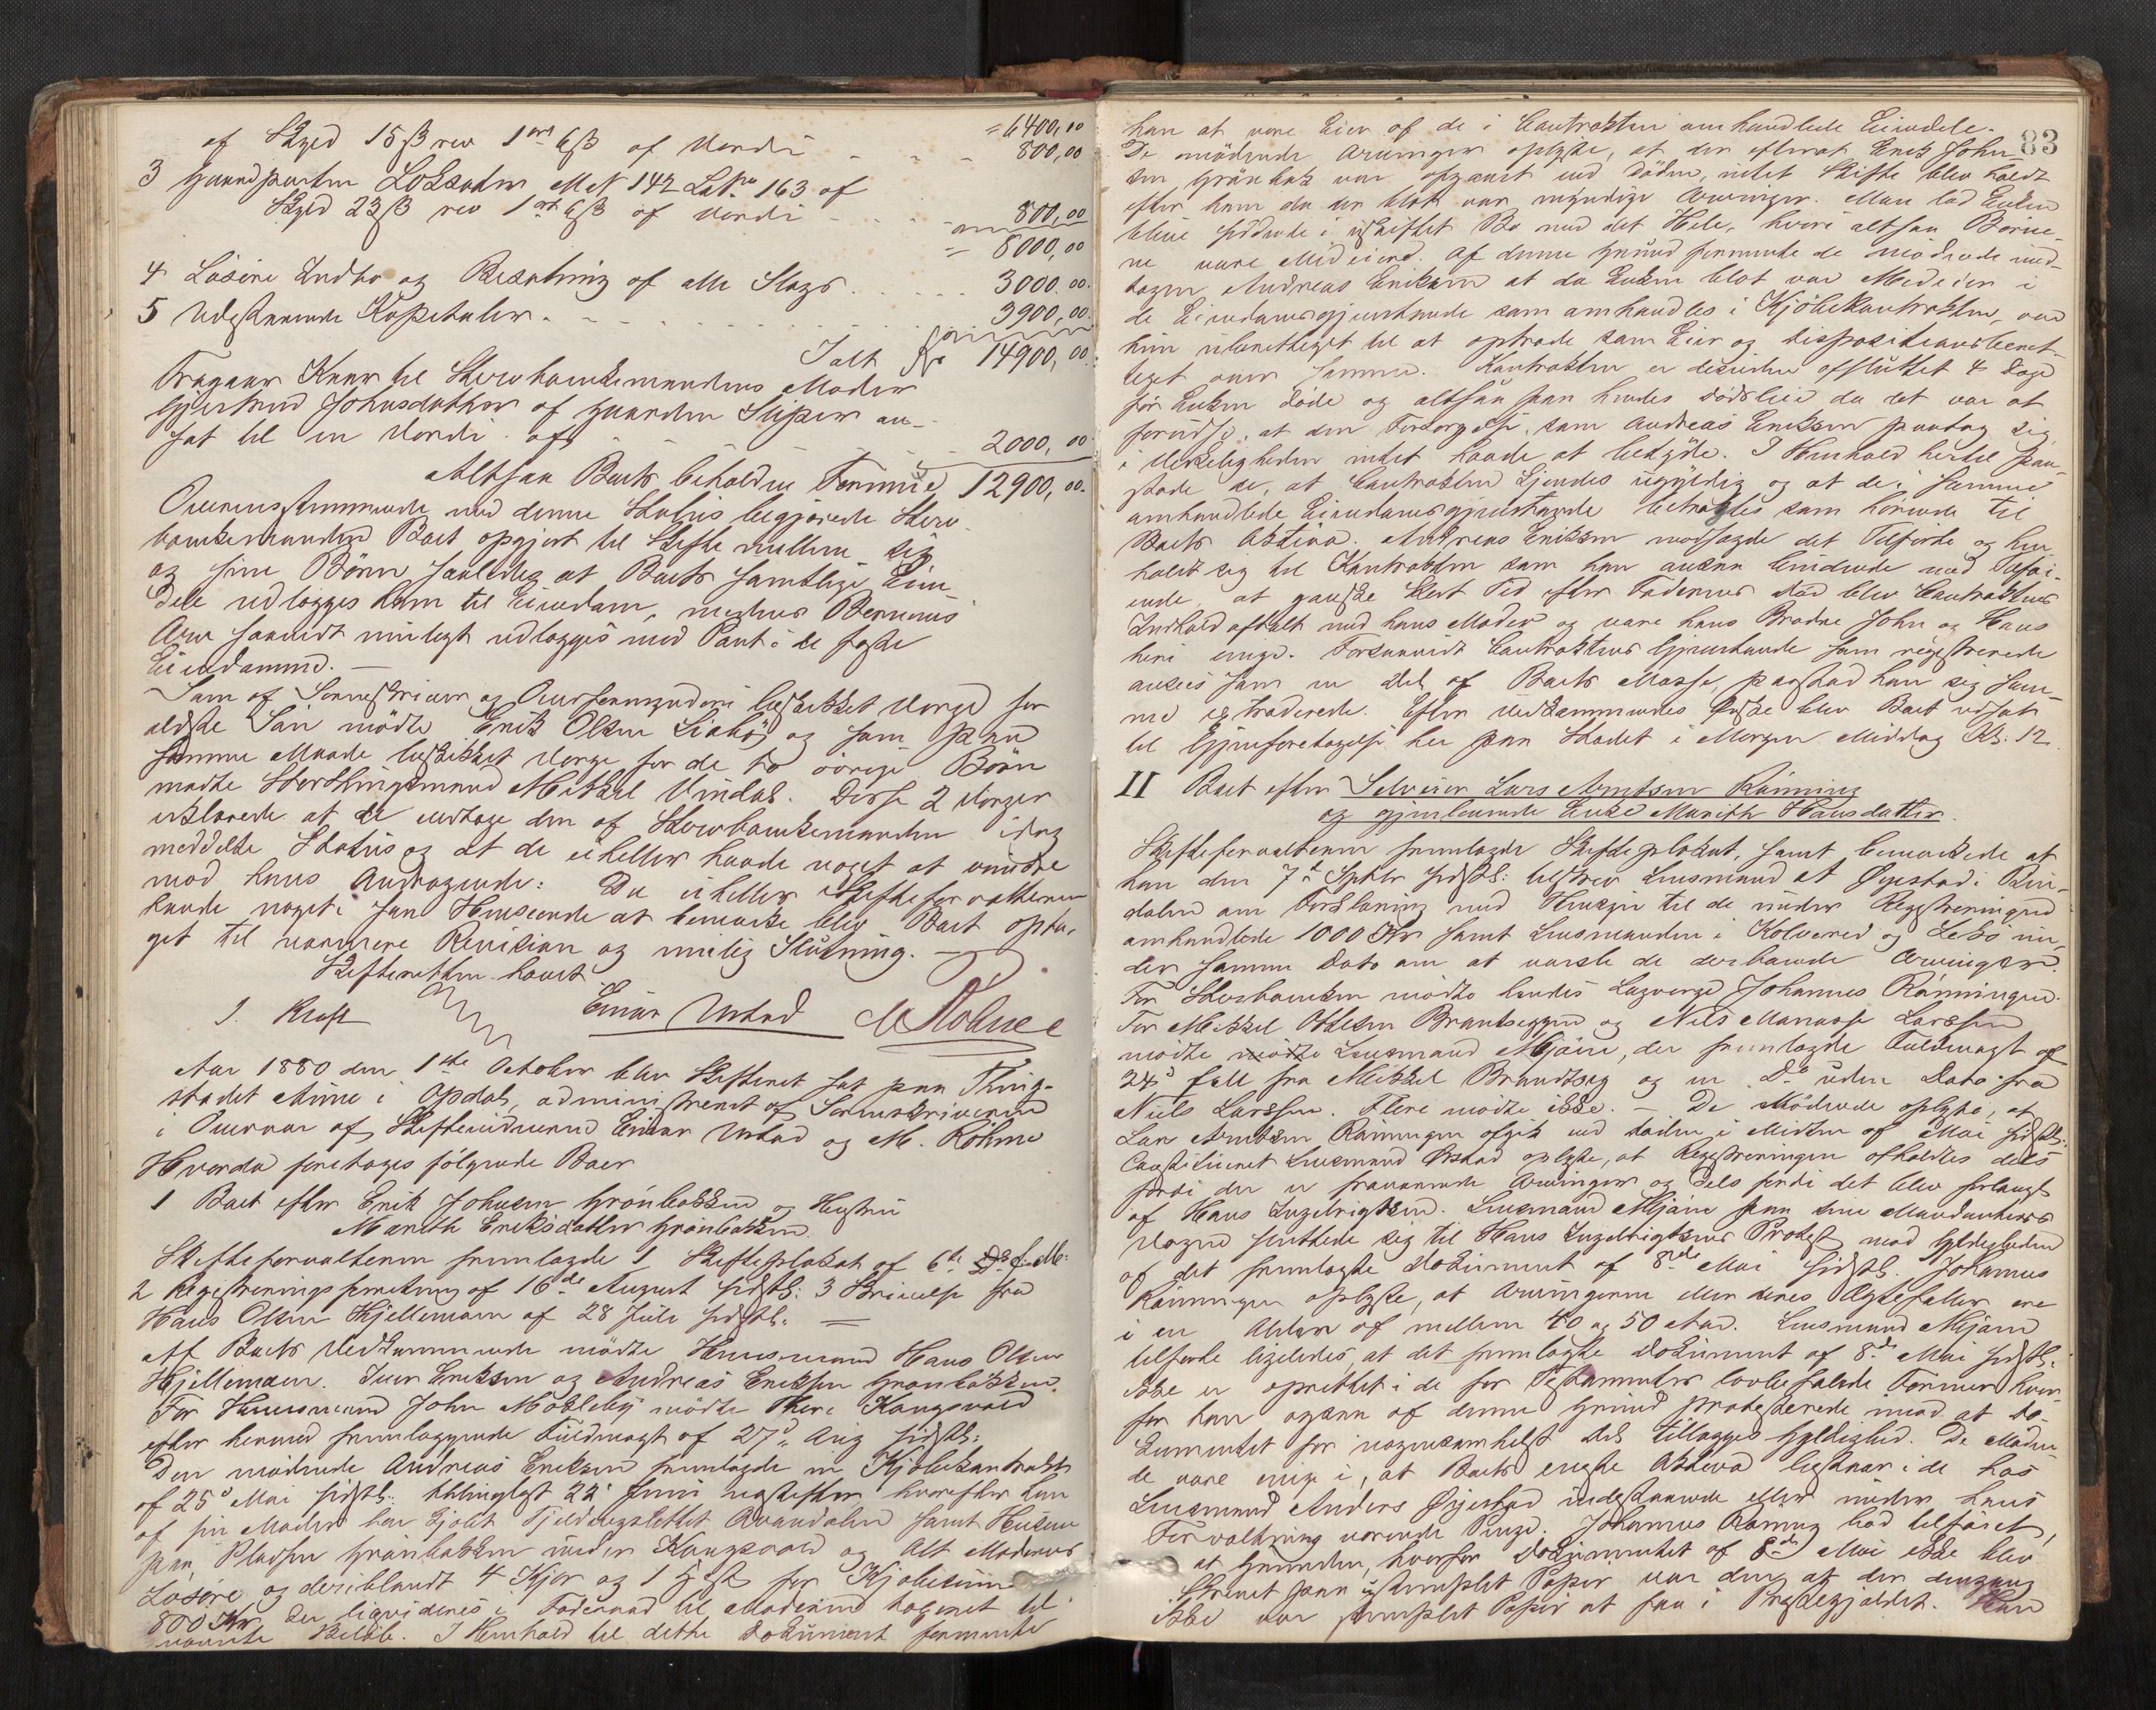 = 6400,00
af Skyld 15 ß rev 1 ort 6 ß af Værdi - - - 800,00
3 Gaardparten Loksalm M N 142 LNo 163 af
Skyld 23 ß rev 1 ort 6 ß af Værdi 800,00
= 8000,00
4 Løsøre Indbo og Besætning af alle Slags 3000.00.
5 Udestaaende Kapitaler. 3900,00.
I alt Kr 14900,00.
Fragaar Kaar til Skervbankemandens Moder
Gjertrud Johnsdatter af Gaarden Stuper an-
sat til en Værdi af 2000,00.
Altsaa Boets beholdne Formue 12900,00.
Overensstemmende med denne Status begjærede
Boet opgjort til Skifte mellem sig
og sine Børn saaledes at Boets samtlige Eien
dele udlægges ham til Eiendom, medens Børnenes
Arv saavidt muligt udlægges med Pant i de faste
Eiendomme. —
Som af Sorenskriveren og Overformynderi beskikket Værge for
ældste Søn mødte Erik Olsen Liabø og som paa
samme Maade beskikket Værge for de to øvrige Børn
mødte Storthingsmand Mikkel Vindal. Disse 2 Værger
erklærede at de vedtage den af idag
meddelte Status og at de eiheller havde noget at erindre
mod hans Andragende. Da eiheller Skifteforvalteren
havde noget i saa Henseende at bemærke blev Boet opta-
get til nærmere Revision og muelig Slutning. —
Skifteretten hævet
J. Kraft Einar Urstad M Röhme
Aar 1880 den 1ste October blev Skifteret sat paa Thing-
stedet Aune i Opdal, administreret af Sorenskriveren
i Overvær af Skiftevidnerne Einar Urstad og M. Röhme
Hvorda foretages følgende Boer
1 Boet efter Erik Johnsen Grønbakken og Hustru
Marith Eriksdatter Grønbakken.
Skifteforvalteren fremlagde 1 Skifteplakat af 6te f. M:
2 Registreringsforretning af 16de August sidstl: 3 Skrivelse fra
Hans Olsen Hjellemoen af 28 Juli sidstl. —
Af Boets Vedkommende mødte Huusmand Hans Olsen
Hjellemoen. Iver Eriksen og Andreas Eriksen Grønbakken
For Huusmand John Mobleby mødte Thore Kongsvold
efter hermed fremlæggende Fuldmagt af 27d Aug sidstl:
Den mødende Andreas Eriksen fremlagde en Kjøbekontrakt
af 25d Mai sidstl: thinglæst 22 Juni næstefter hvorefter han
af sin Moder har kjøbt Fjeldengslettet Kvandalen samt Husene
paa Pladsen Grønbakken under Kongsvold og alt Moderens
Løsøre og deriblandt 4 Kjør og 1 Hest for Kjøbesum
800 Kr der liqvideres i Foderaad til Moderen taxeret til
nævnte Beløb. I Henhold til dette Document formente
83
han at være Eier af de i Contrakten omhandlede Eiendele.
De mødende Arvinger oplyste, at der efterat Erik John
sen Grønbak var afgaaet ved Døden, intet Skifte blev holdt
efter ham da der blot var myndige Arvinger. Man lod Enken
blive siddende i uskiftet Bo med det Hele, hvori altsaa Børne-
ne vare Medeiere. Af denne Grund formente de mødende und-
tagen Andreas Eriksen at da Enken blot var Medeier i
de Eiendomsgjenstande som omhandles i Kjøbekontrakten, var
hun uberettiget til at optræde som Eier og dispositionsberet-
tiget over samme. Kontrakten er desuden afsluttet 4 Dage
før Enken døde og altsaa paa hendes Dødsleie da det var at
forudse, at den Forsørgelse, som Andreas Eriksen paatog sig
i Virkeligheden intet havde at betyde. I Henhold hertil paa-
stode de, at Contrakten kjendes ugyldig og at de i samme
omhandlede Eiendomsgjenstande betragtes som hørende til
Boets Aktiva. Andreas Eriksen modsagde det Tilførte og hen-
holdt sig til Kontrakten som han ansaa bindende med Tilføi-
ende, at ganske kort Tid efter Faderens Død blev Contraktens
Indhold aftalt med hans Moder og vare hans Brødre John og Hans
heri enige. Forsaavidt Contraktens Gjenstande som registrerede
ansees som en Del af Boets Masse, paastod han sig sam-
me extraderede. Efter Vedkommendes Ønske blev Boet udsat
til Gjenforetagelse her paa Stedet i Morgen Middag Kl: 12
II Boet efter Selveier Lars Arntsen Rönning
og gjenlevende Enke Marith Hansdatter.
Skifteforvalteren fremlagde Skifteplakat, samt bemærkede at
han den 7d Septbr sidstl: tilskrev Lensmand At Øyestad i Rin-
dalen om Forklaring med Hensyn til de under Registreringen
omhandlede 1000 Kr samt Lensmanden i Kolvered og Leksø un-
der samme Dato om at varsle de derboende Arvinger.
For Stervbenken mødte hendes Lagværge Johannes Rönningen.
For Mikkel Ottesen Brandtseggen og Nils Manasse Larssen
mødte mødte Lensmand Mjöen, der fremlagde Fuldmagt af
24d f. M. fra Mikkel Brandtseg og en Do uden Dato fra
Niels Larssen. Flere mødte ikke. — De Mødende oplyste, at
Lars Arntsen Rönningen afgik ved Døden i Midten af Mai sidstl:
Constitueret Lensmand Urstad oplyste, at Registreringen afholdtes dels
fordi der er fraværende Arvinger og dels fordi det blev forlangt
af Hans Ingebrigtsen. Lensmand Mjöen paa sine Mandanters
Vegne sluttede sig til Hans Ingebrigtsens Protest mod Gyldigheden
af det fremlagte Dokument af 8de Mai sidstl. Johannes
Rönningen oplyste, at Arvingerne eller deres Ægtefæller ere
i en Alder af mellem 40 og 50 Aar. Lensmand Mjöen
tilførte ligeledes, at det fremlagte Dokument af 8de Mai sidstl:
ikke er oprettet i de for Testamenter lovbefalede Former hvor-
for han ogsaa af denne Grund protesterede mod at Do-
kumentet for nogensomhelst Del tillægges Gyldighed. De Møden-
de vare enige i, at Boets eneste Aktiva bestaar i de hos
Lensmand Anders Øyestad indestaaende eller under hans
Forvaltning værende Penge. Johannes Rönning bød tilføret,
at Grunden, hvorfor Dokumentet af 8de Mai ikke blev
skrevet paa stemplet Papir var den, at der dengang
ikke var stemplet Papir at faa i Præstegjeldet. Han